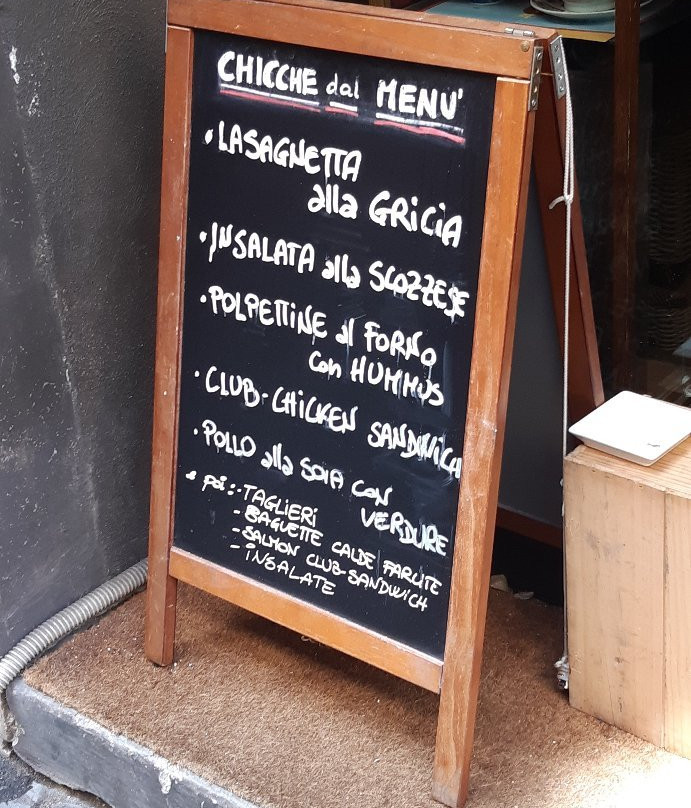 CHICCHE dal MENU'
• LASAGNETTA
alla GRICIA
• INSALATA alla SCOZZESE
• POLPETTINE al FORNO
con HUMMUS
• CLUB-CHICKEN SANDWICH
• POLLO alla SOIA CON
VERDURE
e poi: - TAGLIERI
- BAGUETTE CALDE FARCITE
- SALMON CLUB-SANDWICH
- INSALATE